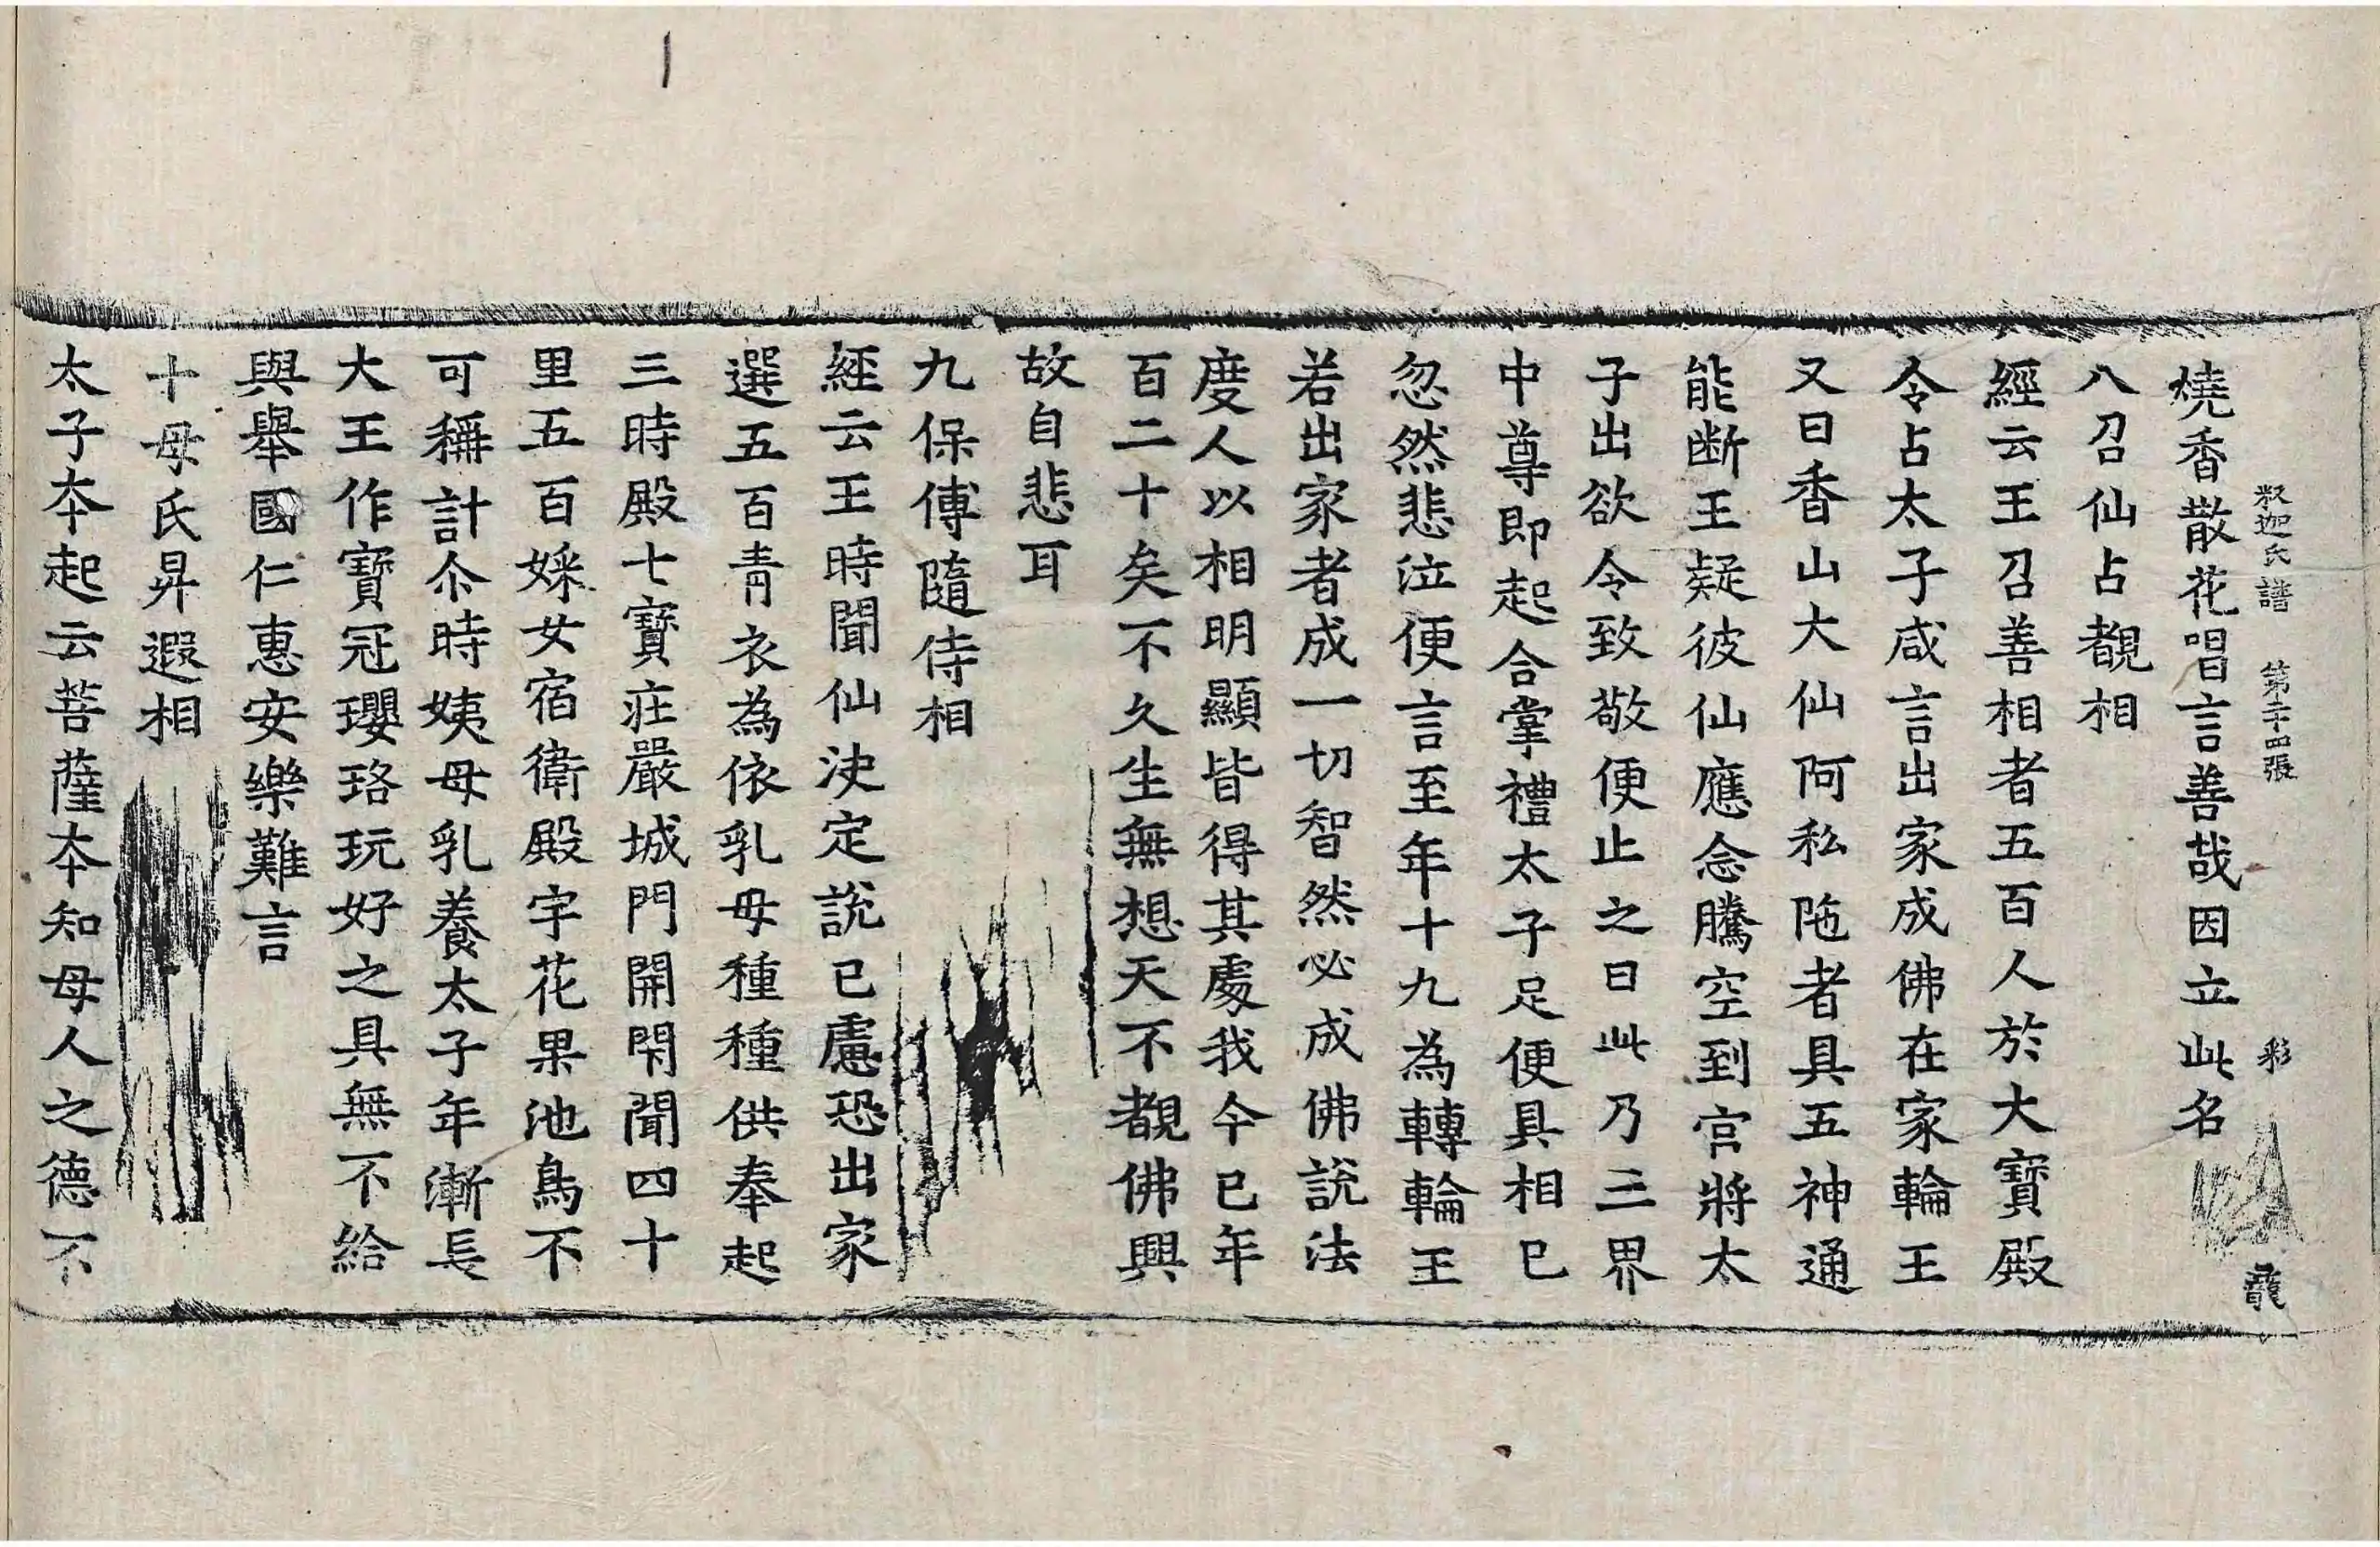 釈迦氏譜 第二十四張 彩 龍
燒香散花唱言善哉因立此名
八召仙占覩相
經云王召善相者五百人於大寶殿
令占太子咸言出家成佛在家輪王
又曰香山大仙阿私陁者具五神通
能断王疑彼仙應念騰空到宫將太
子出欲令致敬便止之曰此乃三界
中尊即起合掌禮太子足便具相已
忽然悲泣便言至年十九為轉輪王
若出家者成一切智然必成佛說法
度人以相明顯皆得其處我今已年
百二十矣不久生無想天不覩佛興
故自悲耳
九保傅隨侍相
經云王時聞仙决定說已慮恐出家
選五百青衣為依乳母種種供奉起
三時殿七寶庄嚴城門開閇聞四十
里五百婇女宿衛殿宇花果池鳥不
可稱計尒時姨母乳養太子年漸長
大王作寶冠瓔珞玩好之具無不給
與舉國仁惠安樂難言
十母氏昇遐相
太子夲起云菩薩夲知母人之德不